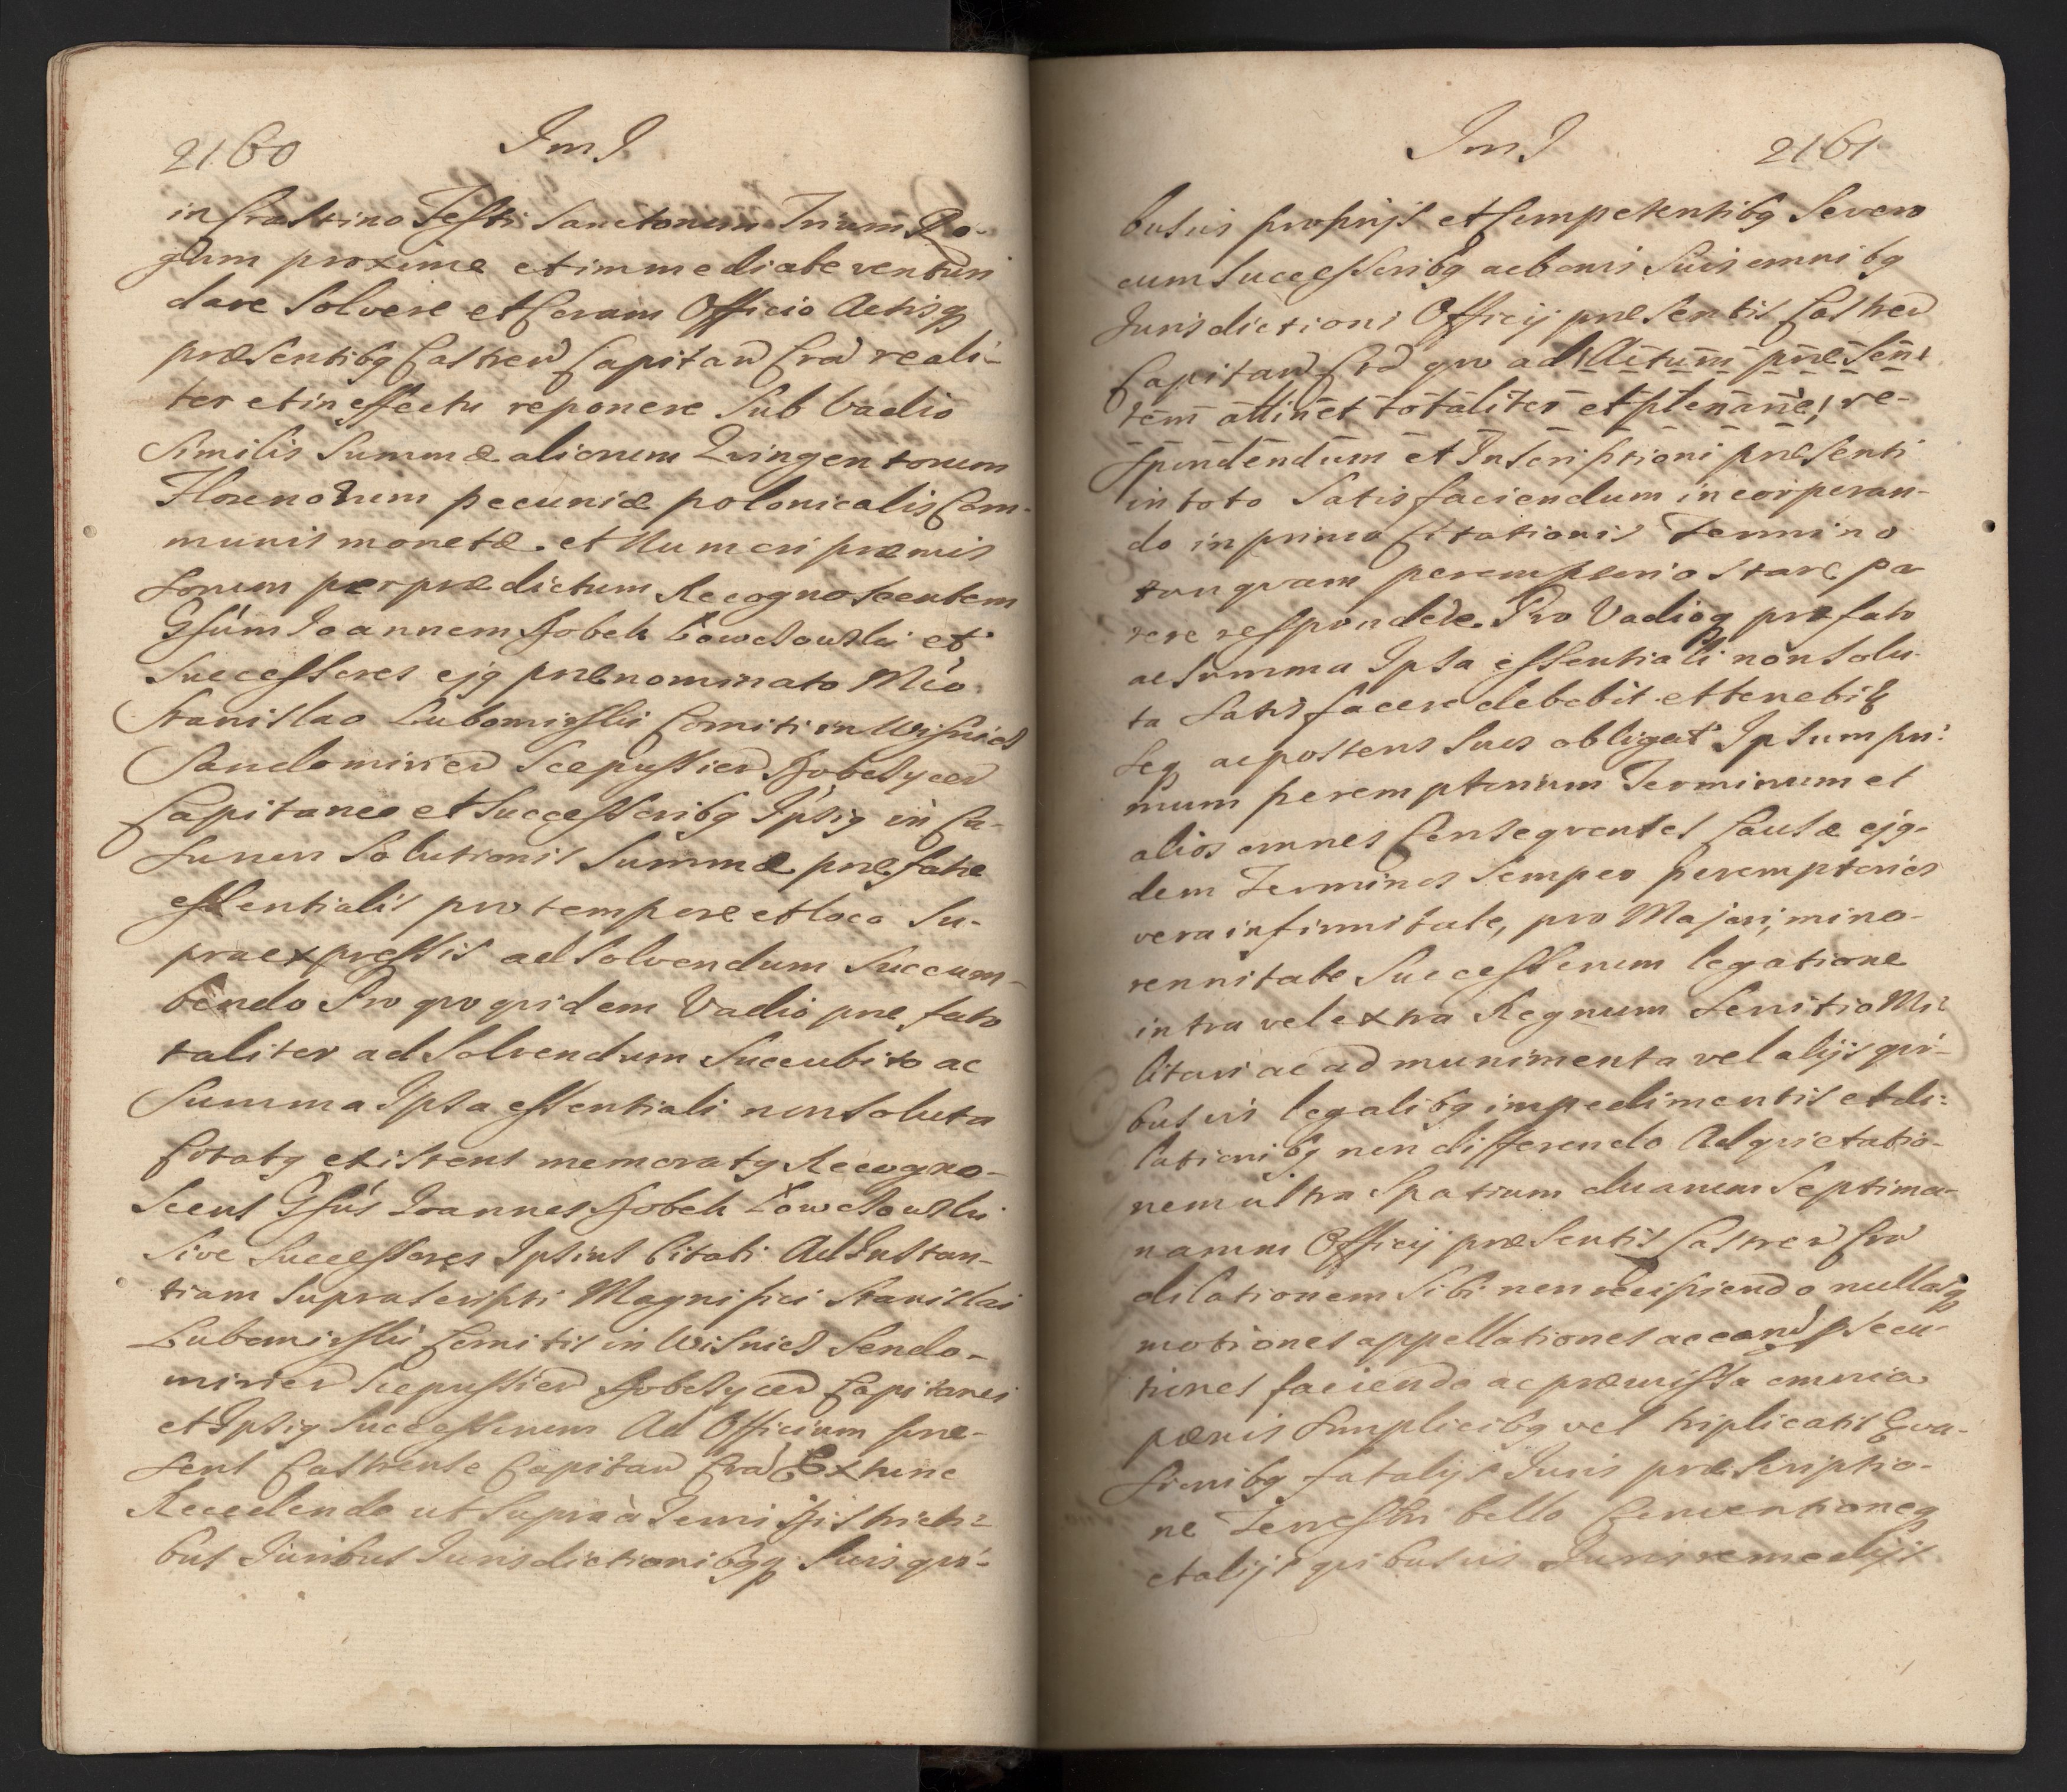 2160
ImJ
in Crastino Festi Sanctorum Trium Re-
gum proxime et immediate venturi
dare Solvere et Coram Officio Actisq
præsentibg Castren Capitan Cra reali-
ter et in effectu reponere Sub Vadio
Similis Summæ aliorum Qvingentorum
Florenorum pecuniæ polonicalis Com-
munis monetæ. et Numeri præmis
sorum per prædictum Recognoscentem
Gsum Joannem Hobek Łowczowski et
Successores ejg prænominato Mco
Stanislao Lubomirski Comiti in Wisnicz
Sandomirien Scepussien Zobelycen
Capitaneo et Successoribg Ipsig in Ca-
sunon Solutionis Summæ præfatæ
essentialis pro tempore et loco Su-
praexpressis ad Solvendum Succum-
bendo Pro qvo qvidem Vadio præfato
taliter ad Solvendum Succubito ac
Summa Ipsa essentiali non Soluta
Citatg existens memoratg Recogno-
Scens Gsus Joannes Hobek Łowczowski
Sive Successores Ipsius Citati Ad Instan-
tiam Suprascripti Magnifici Stanislai
Lubomirski Comitis in Wisnicz Sendo-
mirien Scepussien Zobelycen Capitanei
et Ipsig Successorum Ad Officium præ-
sens Castrense Capitan Cra Extunc
Recedendo ut Supra à Terris Districti-
bus Juribus Jurisdictionibgq Suis qvi-
ImJ
2161
busvis proprijs et Competentibg Se vero
cum Successoribg ac bonis Suis omnibg
Jurisdictioni Officij præsentis Castren
Capitan Crã qvo ad Actum præsen-
tem attinet totaliter et plenarie, re-
Spondendum et Inscriptioni præsenti
in toto Satisfaciendum incorporan-
do in primo Citationis Termino
tanqvam peremptorio Stare pa
rere respondere. Pro Vadioq præfato
ac Summa Ipsa essentiali non Solu-
ta Satisfacere debebit et tenebit
Seq ac posteros Suos obligat Ipsum pri-
mum peremptorium Terminum et
alios omnes Conseqventes Causæ ejg-
dem Terminos Semper peremptorios
vera infirmitate, pro Majori, mino-
rennitate Successorum legatione
intra vel extra Regnum Servitio Mi-
litari ac ad munimenta vel alijs qvi-
busvis legalibg impedimentis et di-
lationibg non differendo Ad qvietatio-
nem ultra Spatium duarum Septima-
narum Officij præsentis Castren Cra
dilationem Sibi non recipiendo nullasq
motiones appellationes ac eand pSecu-
tiones faciendo ac præmissa omnia
pænis Simplicibg vel triplicatis Eva-
sionibg fatalijs Juris præscriptio-
ne Terrestri bello Conventioneq
et alijs qvibusvis Juris remedijs